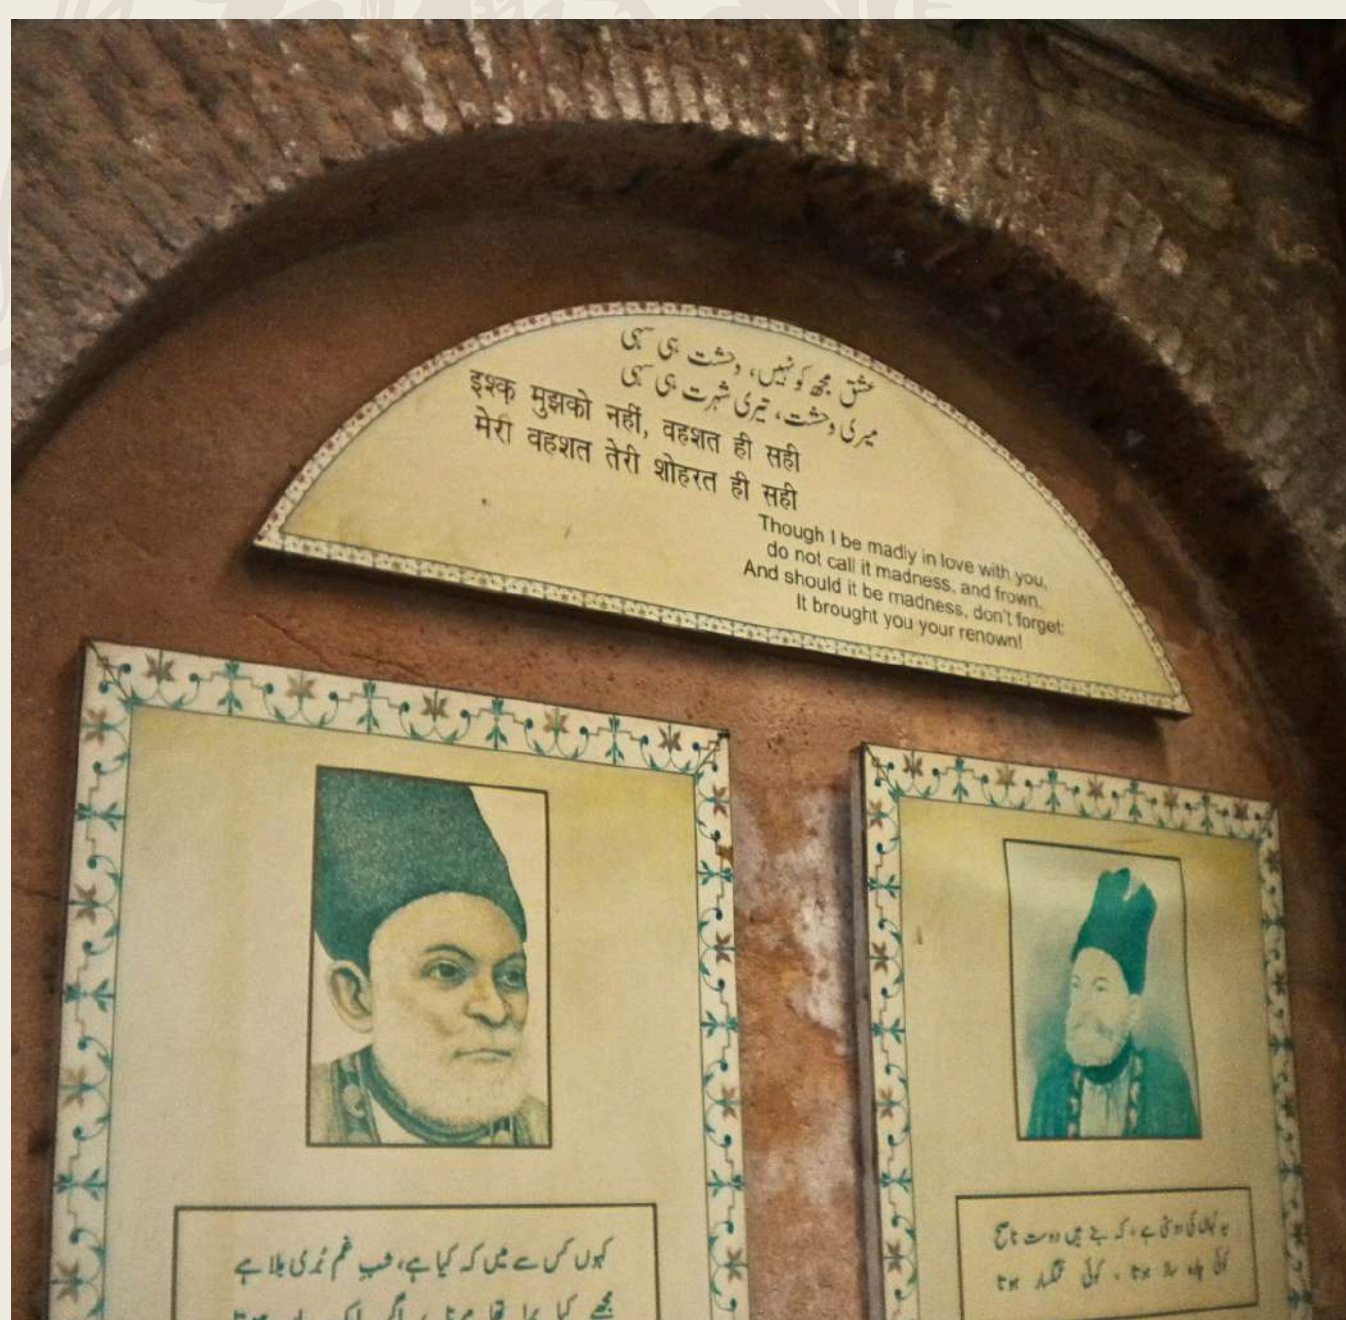 عشق مجھ کو نہیں، وحشت ہی سہی
میری وحشت، تیری شہرت ہی سہی
इश्क़ मुझको नहीं, वहशत ही सही
मेरी वहशत तेरी शोहरत ही सही
Though I be madly in love with you,
do not call it madness, and frown.
And should it be madness, don't forget:
It brought you your renown!
کہوں کس سے میں کہ کیا ہے، شبِ غم بُری بلا ہے
مجھے کیا برا تھا مرنا، اگر ایک بار ہوتا
یہ کہاں کی دوستی ہے، کہ بنے ہیں دوست ناصح
کوئی چارہ ساز ہوتا، کوئی غمگسار ہوتا